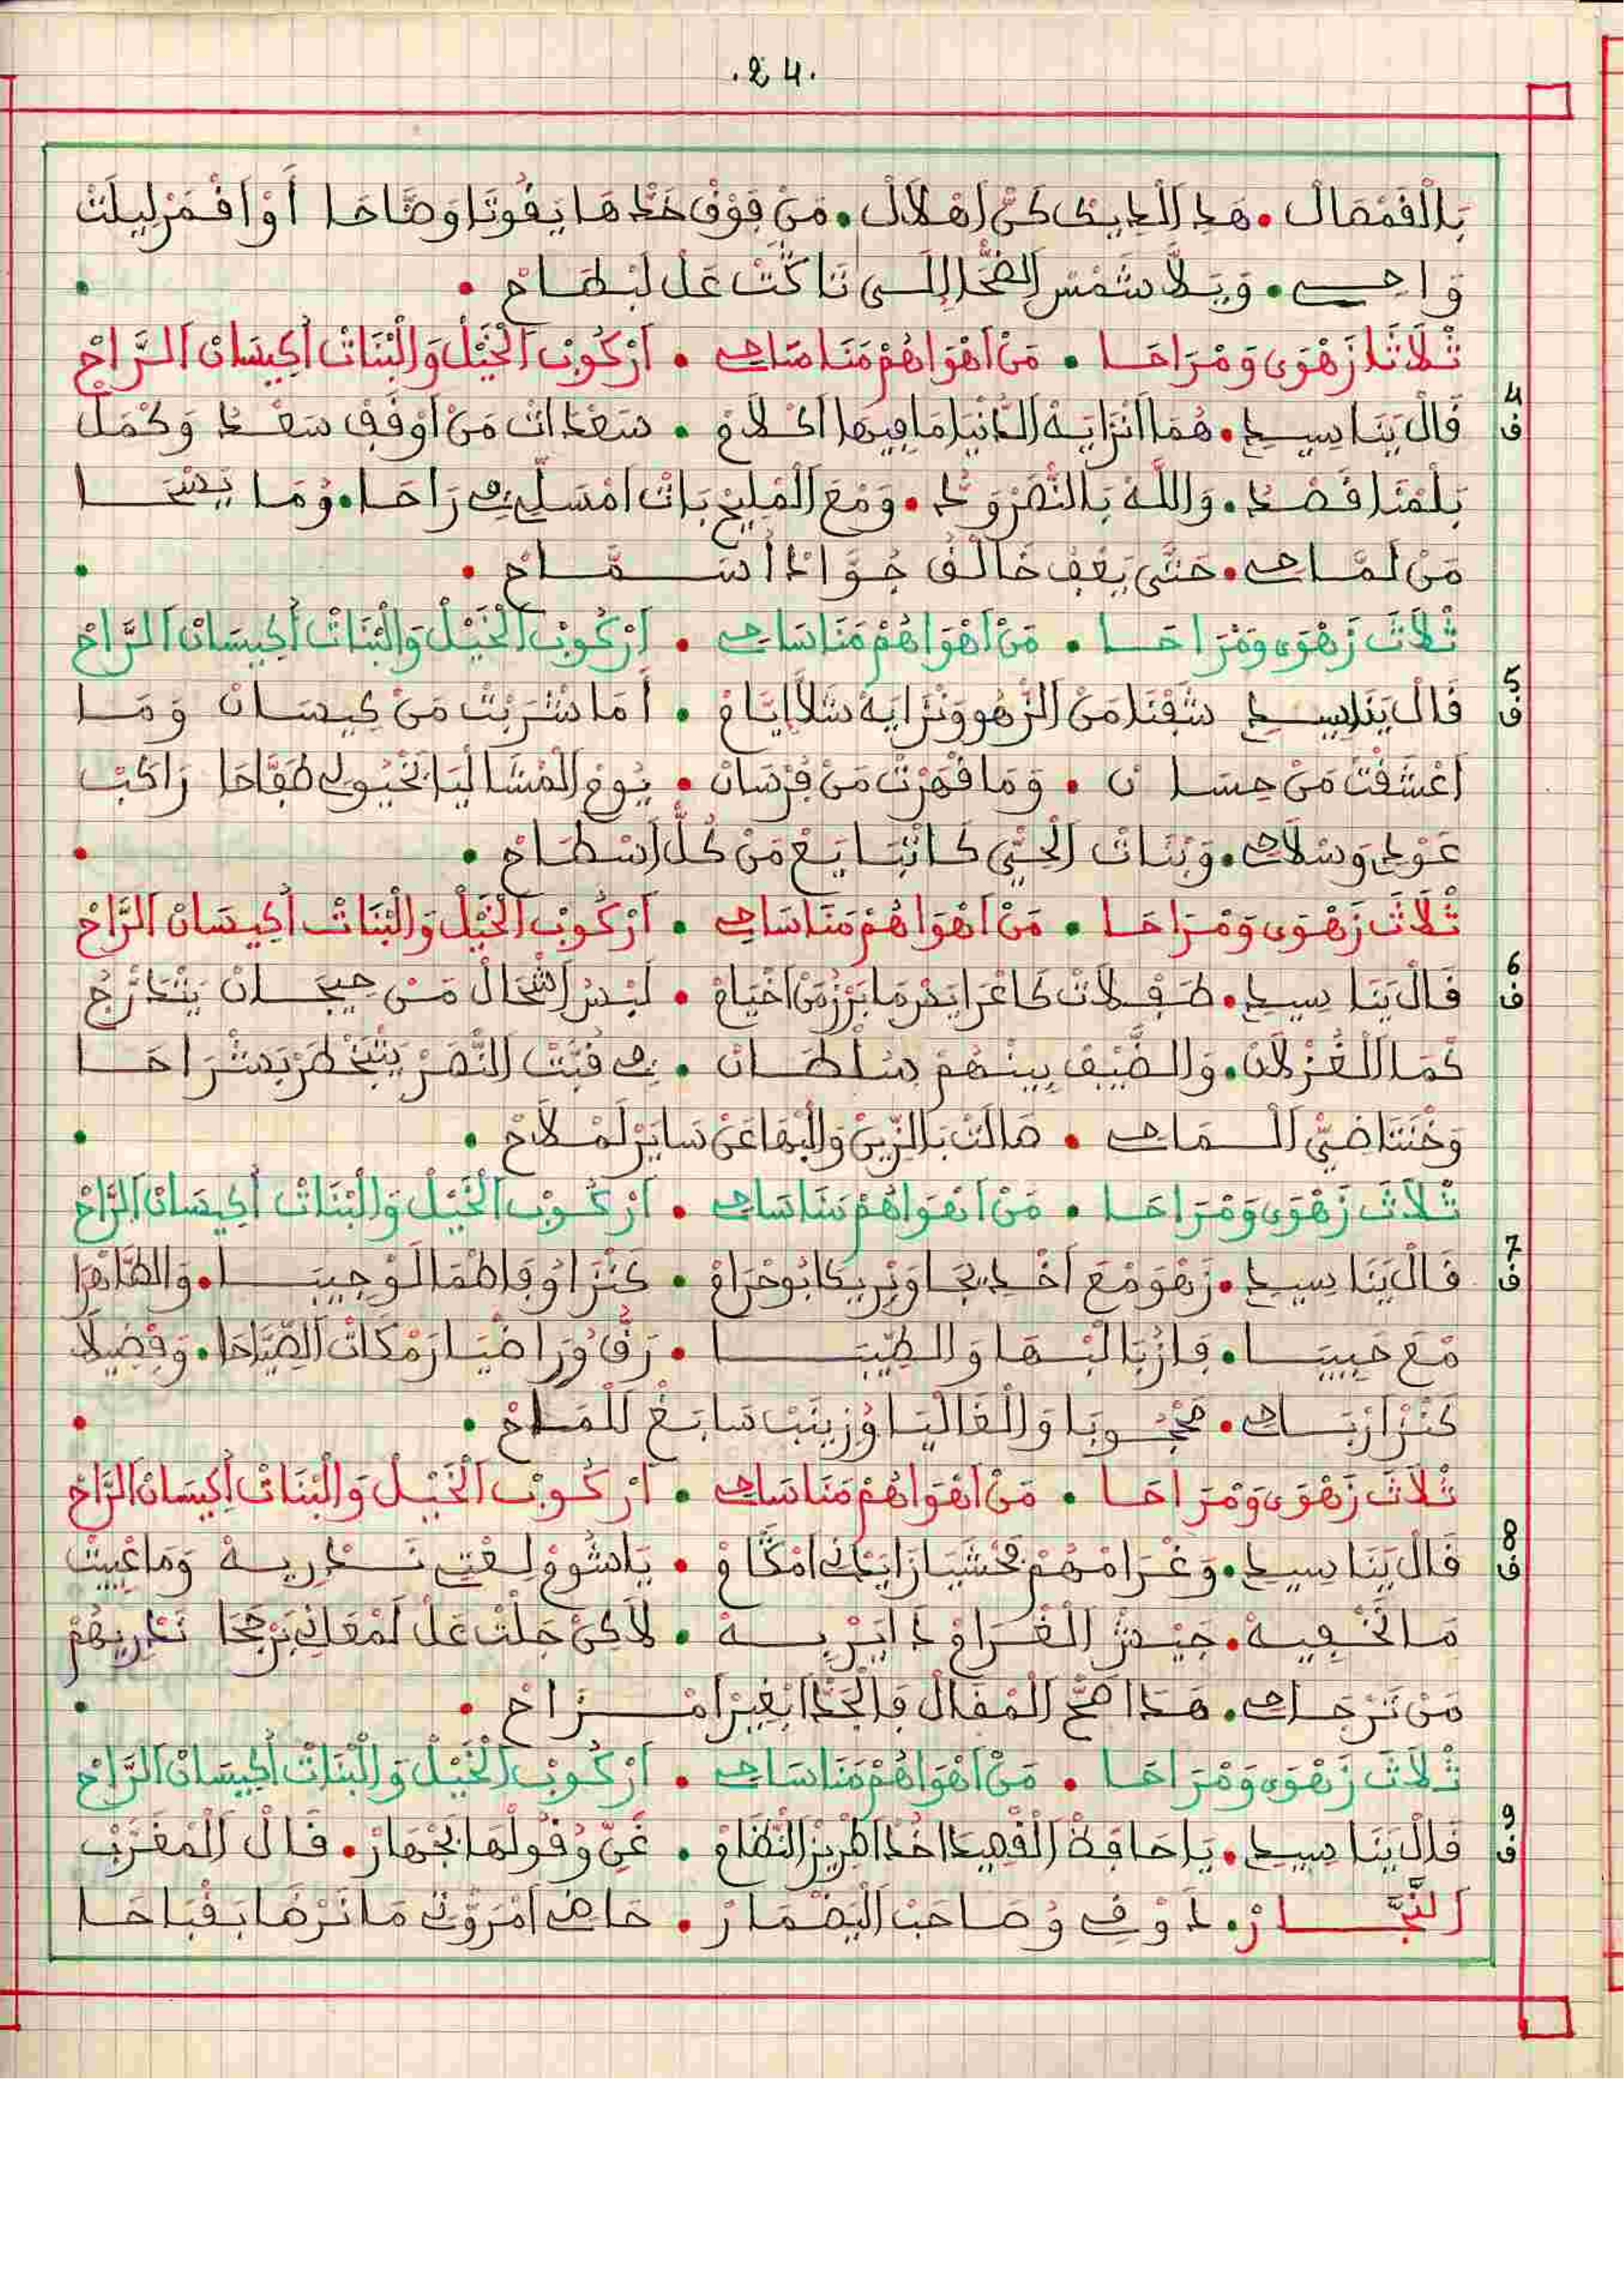 .24.
بَالْقَمْصَالْ • هَدِ الْدِيكْ كَنّْ اَهْلَالْ • مَنْ فَوْقْ خَدّْهَا يَفُوتَا وَضَّاحَا أَوْ اقْمَرْ لِيلَتْ
وَاحِي • وَيَلَّا شَمْسْ الضّْحَا اِلَّلي تَاكَّتْ عَلْ لَبْطَاحْ •
ثْلَاثَا زَهْوَى وَمْرَاحَا • مَنْ اهْوَاهُمْ مَنَاصَاحِي • اَرْكُوبْ الْخَيْلْ وَالْبْنَاتْ أُكِيسَانْ الرَّاحْ
4 ف
قَالْ يَنَا سِيدِي • هُمَا انْزَايَهْ الدَّنْيَا مَا فِيهَا اكْلَامْ • سَعْدَاتْ مَنْ اوْقَفْ سَعْدُ وَكْمَلْ
بَلْمْنَا قَصْدُ • وَاللَّهْ بَالنّْصَرْ وَدُّ • وَمْعَ الْمْلِيحْ بَاتْ امْسَلِّي فِي رَاحَا • وُمَا يَسْخَا
مَنْ لَمَّاحِي • حَتَّى يَعْفُ خَالْقُ جُوَّادْ أُسَمَّاحْ •
ثْلَاثَ زَهْوَى وَمْرَاحَا • مَنْ اهْوَاهُمْ مَنَاسَاحِي • اَرْكُوبْ الْخَيْلْ وَالْبْنَاتْ أُكِيسَانْ الرَّاحْ
5 ف
قَالْ يَنَا سِيدِي شَفْنَا مَنْ الزّْهو وَنْزَايَهْ شَلَّا ايَّامْ • أَمَا شْرَبْتْ مَنْ كِيسَانْ وَمَا
اعْشَقْتْ مَنْ حِسَانْ • وَمَا قْهَرْتْ مَنْ فُرْسَانْ • يُومْ الْمْشَالْيَا بَخْيُولِي طَفَّاحَا رَاكَبْ
عَوْدِي وَسْلَاحِي • وَبْنَاتْ الْحَيّْ كَاتْبَايَعْ مَنْ كُلّْ اَسْطَاحْ •
ثْلَاثَ زَهْوَى وَمْرَاحَا • مَنْ اهْوَاهُمْ مَنَاسَاحِي • اَرْكُوبْ الْخَيْلْ وَالْبْنَاتْ أُكِيسَانْ الرَّاحْ
6 ف
قَالْ يَنَا سِيدِي • طَفْلَاتْ كَاعْرَايَسْ مَا بَرْزُ مَنْ اخْيَامْ • لَبْسُ اشْحَالْ مَنْ حِيجَانْ يَتْدَرّْجُ
كْمَا الْغُزْلَانْ • وَالضَّيْفْ بِينْهُمْ سُلْطَانْ • فِي قُبَّتْ النّْصَرْ يَتْبَخْطَرْ بَشْرَاحَا
وَخْنَتَا ضَيّْ الْمَاحِي • صَالَتْ بَالزِّينْ وَالْبْهَا عَنْ سَايَرْ لَمْلَاحْ •
ثْلَاثَ زَهْوَى وَمْرَاحَا • مَنْ اهْوَاهُمْ مَنَاسَاحِي • اَرْكُوبْ الْخَيْلْ وَالْبْنَاتْ أُكِيسَانْ الرَّاحْ
7 ف
قَالْ يَنَا سِيدِي • زَهْوَ وَمْعَ اخْدِيجَا وَبْرِيكَا بُوحْرَامْ • كَنْزَا وُفَاطْمَا لَوْجِيبَا • وَالطَّاهْرَا
مْعَ حَبِيبَا • فَازُ بَالْبْهَا وَالطِّيبَا • رَقُّ وُرَاضْيَا رَمْكَاتْ الصِّيَّاحَا • وَفْضِيلَا
كَنْزْ ارْبَاحِي • مَحْجُوبَا وَالْغَالْيَا وُزِينَبْ سَابَغْ لَلْمَاحْ •
ثْلَاثَ زَهْوَى وَمْرَاحَا • مَنْ اهْوَاهُمْ مَنَاسَاحِي • اَرْكُوبْ الْخَيْلْ وَالْبْنَاتْ أُكِيسَانْ الرَّاحْ
8 ف
قَالْ يَنَا سِيدِي • وَغْرَامْهُمْ فَحْشَيَا زَايَدْنِي امْكَّامْ • يَا شُومْ لِعْتِي نَدْرِيهْ وَمَا عْيِيتْ
مَا نَخْفِيهْ • جَيْشْ الْغْرَامْ دَايَرْ بِيهْ • لَاكَنْ جَلْتْ عَلْ لَمْعَانِي بَرْجَحَا نَدْرِيهُمْ
مَنْ تَرْجَاحِي • هَدَا صَحّْ الْمْقَالْ فَالْجَدّْ ابْغِيرْ امْزَاحْ •
ثْلَاثَ زَهْوَى وَمْرَاحَا • مَنْ اهْوَاهُمْ مَنَاسَاحِي • اَرْكُوبْ الْخَيْلْ وَالْبْنَاتْ أُكِيسَانْ الرَّاحْ
9 ف
قَالْ يَنَا سِيدِي • يَا حَافَظْ الْقْصِيدَا خُدْ اطْرِيزْ النّْظَامْ • غَنِّي وُقُولْهَا بَجْهَارْ • قَالْ الْمَغْرَبْ
النَّجَّارْ • دَوْقِي وُصَاحَبْ الْيَضْمَارْ • حَاضِي امْرَوّْتِي مَا نَرْضَا بَقْبَاحَا